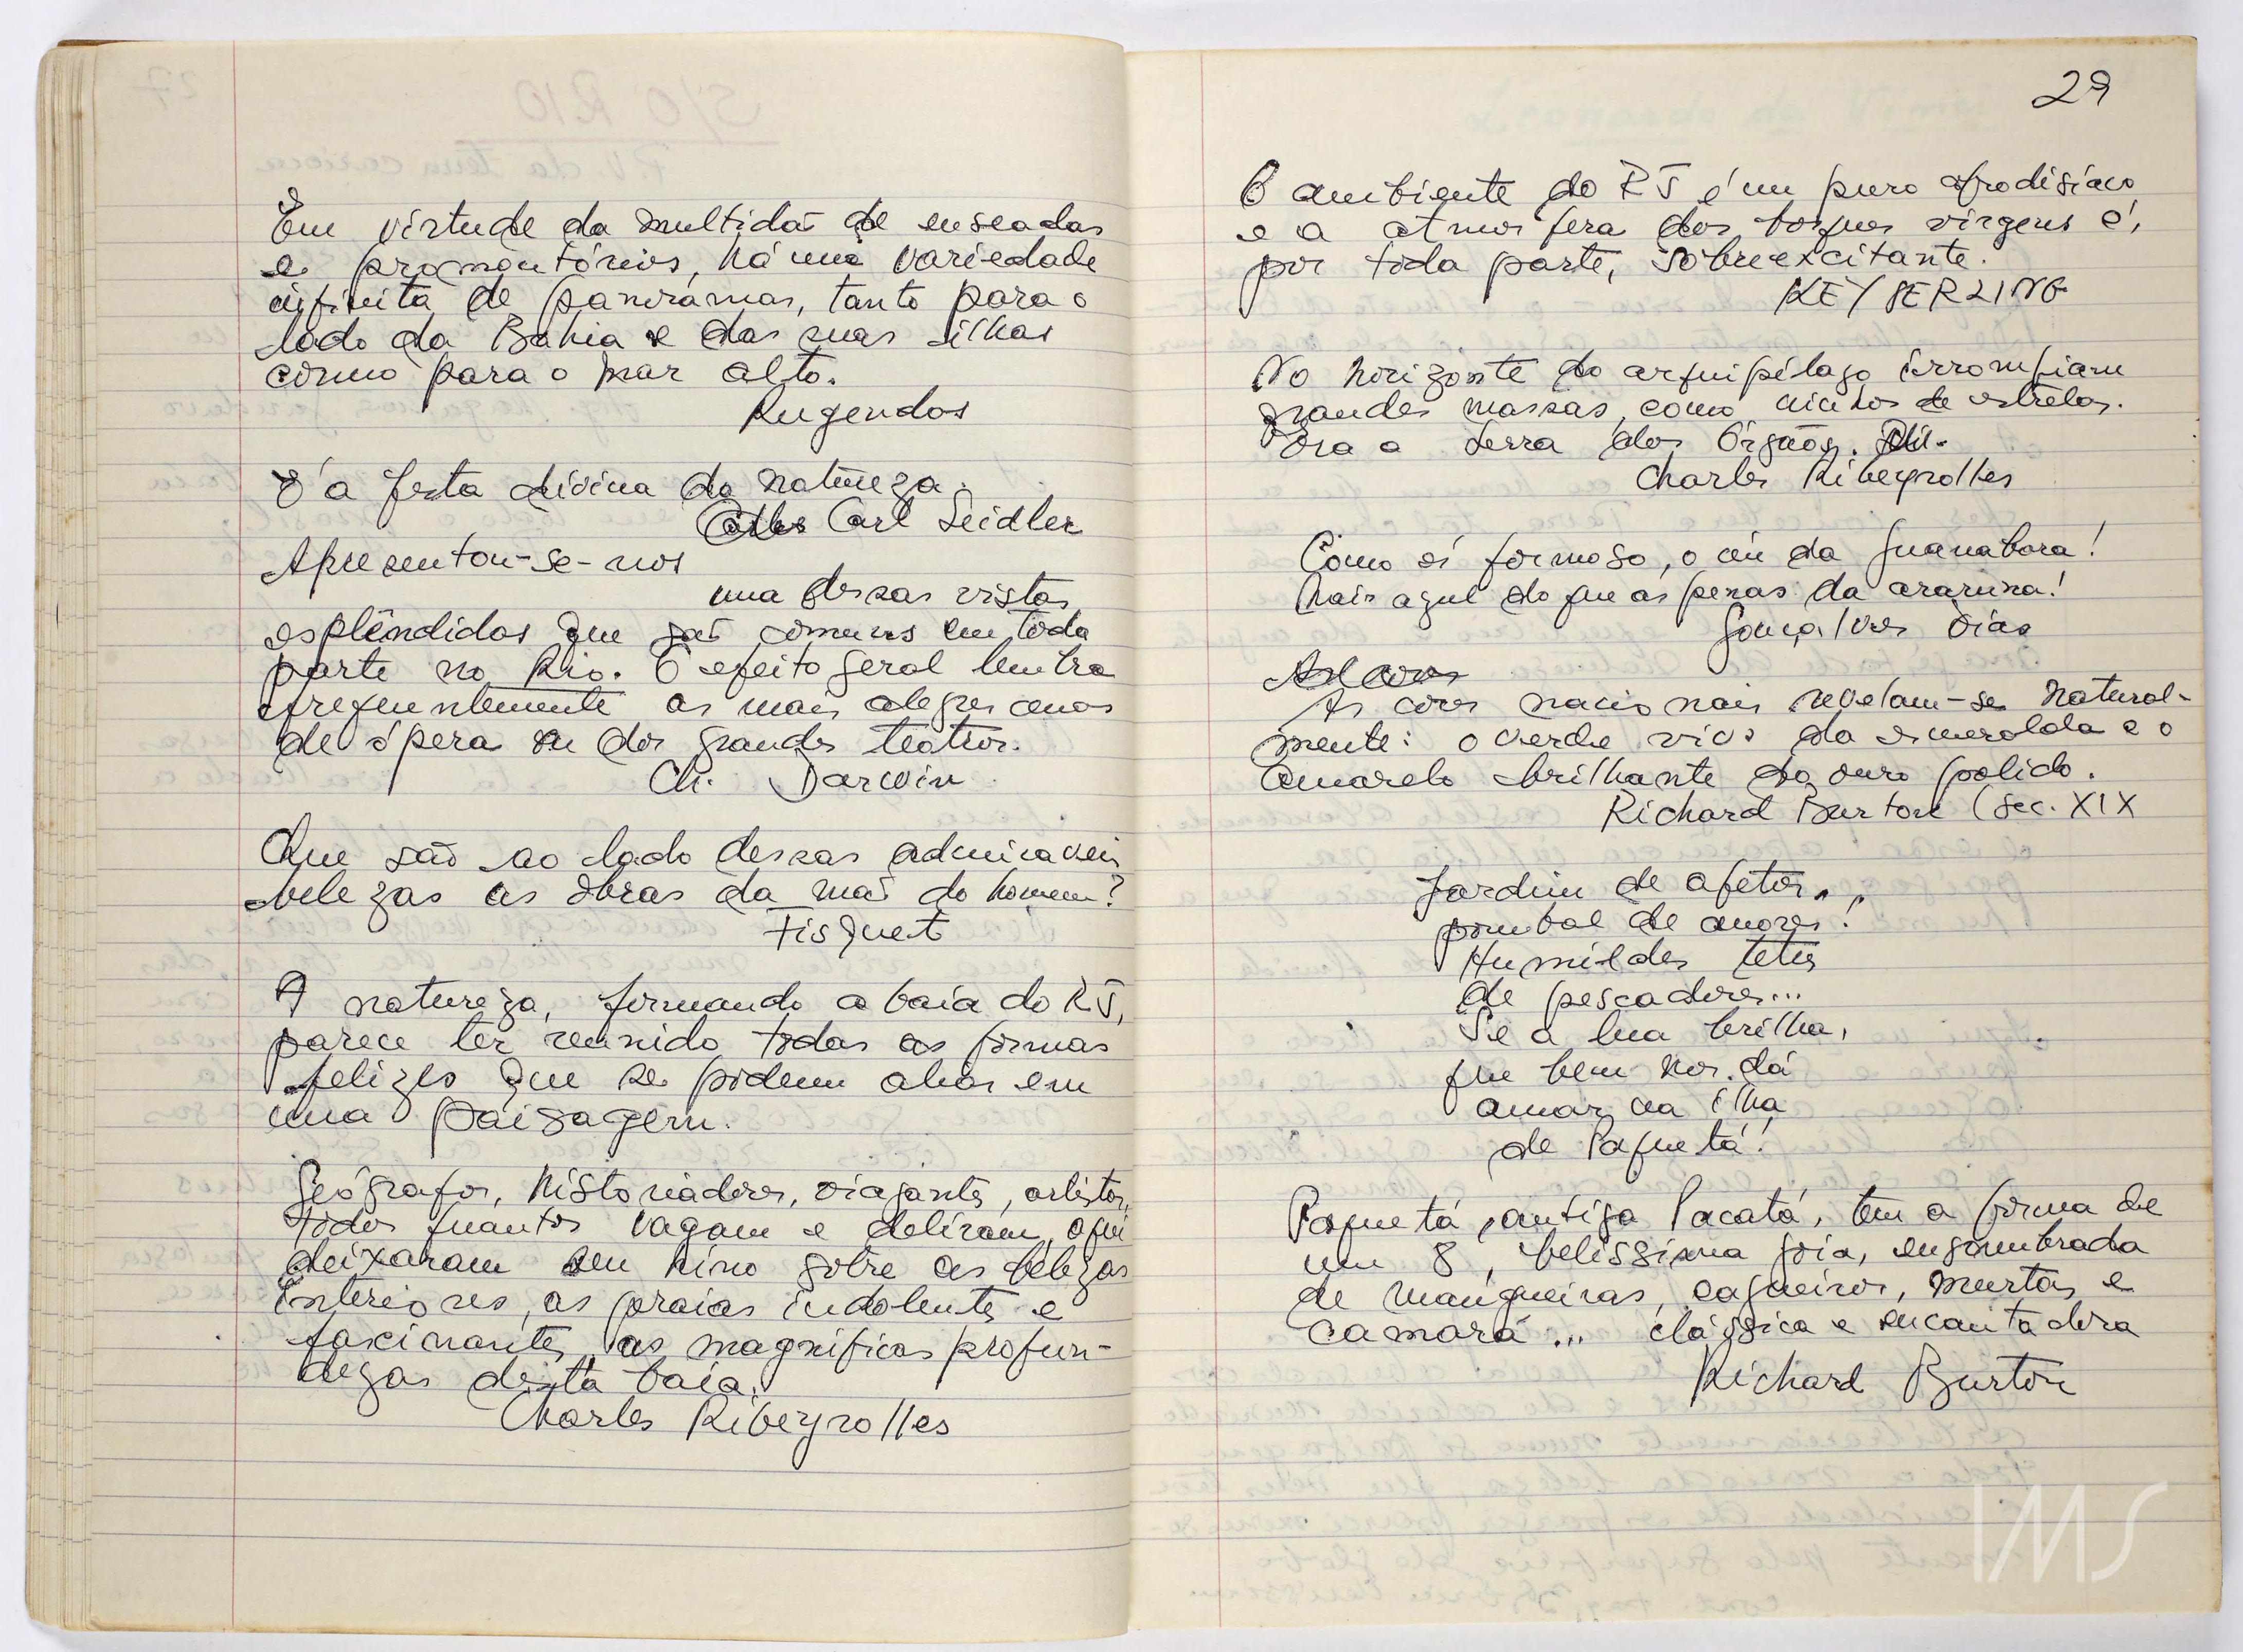 Em virtude da multidão de enseadas
e promontórios, há uma variedade
infinita de panoramas, tanto para o
lado da Bahia e das suas ilhas
como para o mar alto.
Rugendas
É a festa divina da natureza.
Carl Seidler
Apresentou-se-nos
uma dessas vistas
esplêndidas que são comuns em toda
parte no Rio. O efeito geral lembra
frequentemente as mais alegres cenas
de ópera ou dos grandes teatros.
Ch. Darwin
Que são ao lado dessas admiraveis
belezas as obras da mão do homem?
Fisquet
A natureza, formando a baía do RJ,
parece ter reunido todas as formas
felizes que se podem achar em
uma paisagem.
Geógrafos, historiadores, viajantes, artistas,
todos quantos vagam e deliram, aqui
deixaram seu hino sobre as belezas
interiores, as praias indolentes e
fascinantes, as magníficas profun-
dezas desta baía.
Charles Ribeyrolles
29
O ambiente do RJ é um puro afrodisíaco
e a atmosfera dos bosques virgens é,
por toda parte, sobreexcitante.
KEYSERLING
No horizonte do arquipélago irrompiam
grandes massas, como ninhos de estrelas.
Era a Serra dos Órgãos.
Charles Ribeyrolles
Como és formoso, o céu da Guanabara!
Mais azul do que as penas da araruna!
Gonçalves Dias
As cores nacionais revelam-se natural-
mente: o verde vivo da esmeralda e o
amarelo brilhante do ouro polido.
Richard Burton (sec. XIX
Jardim de afetos,
pombal de amores!
Humildes tetos
de pescadores...
Se a lua brilha,
que bem nos dá
amar na ilha
de Paquetá!
Paquetá, antiga Pacatá, tem a forma de
um 8, belissima joia, ensombrada
de mangueiras, cajueiros, murtas e
camará... clássica e encantadora
Richard Burton
IMS